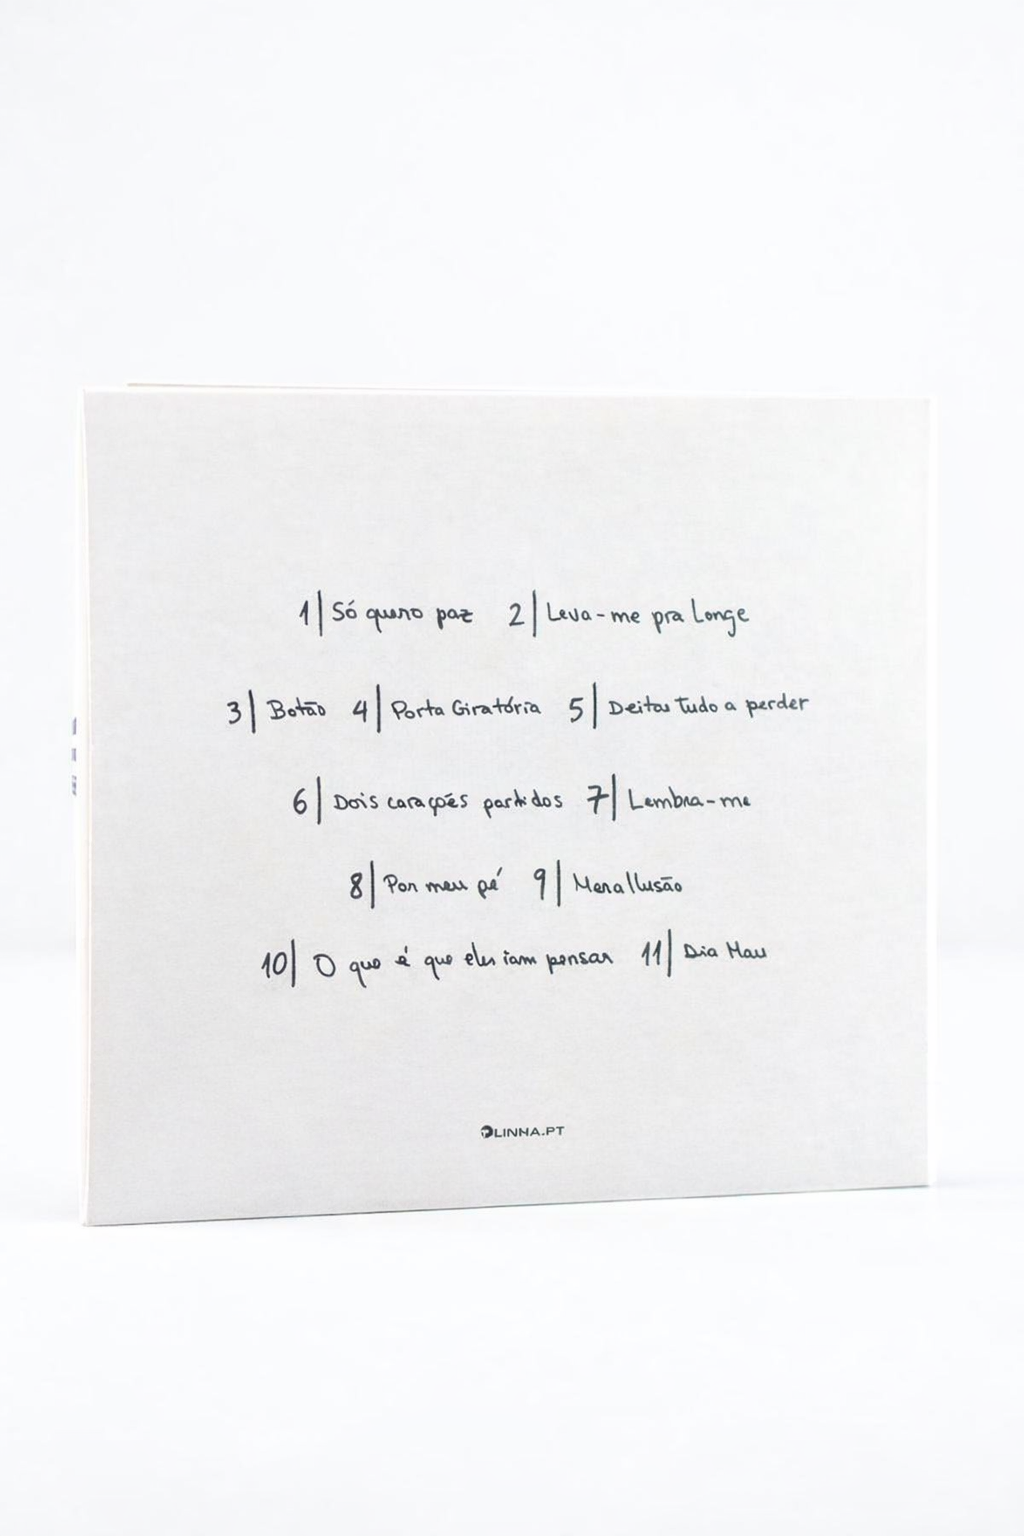 1| Só quero paz 2| Leva-me pra Longe
3| Botão 4| Porta Giratória 5| Deitas tudo a perder
6| Dois corações partidos 7| Lembra-me
8| Por meu pé 9| Mera Ilusão
10| O que é que eles iam pensar 11| Dia Mau
LINHA.PT